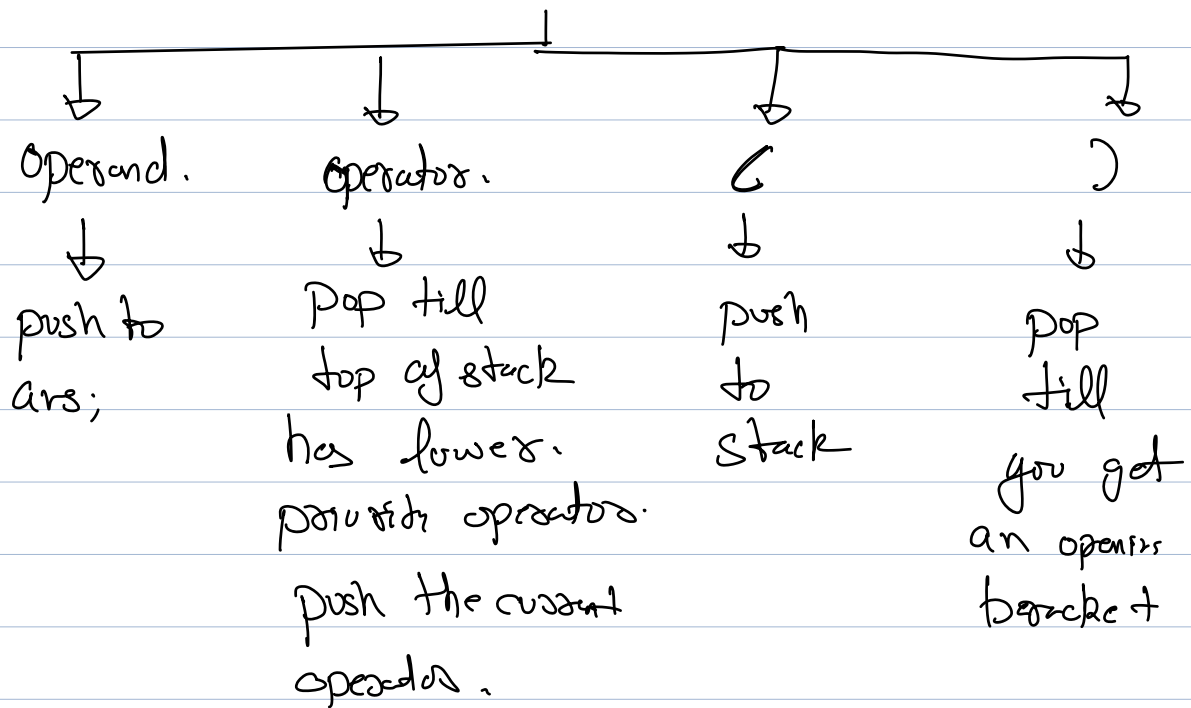 operand.
operator.
(
)
push to
ans;
pop till
top of stack
has lower.
priority operator.
push the current
operator.
push
to
stack
pop
till
you get
an opening
bracket